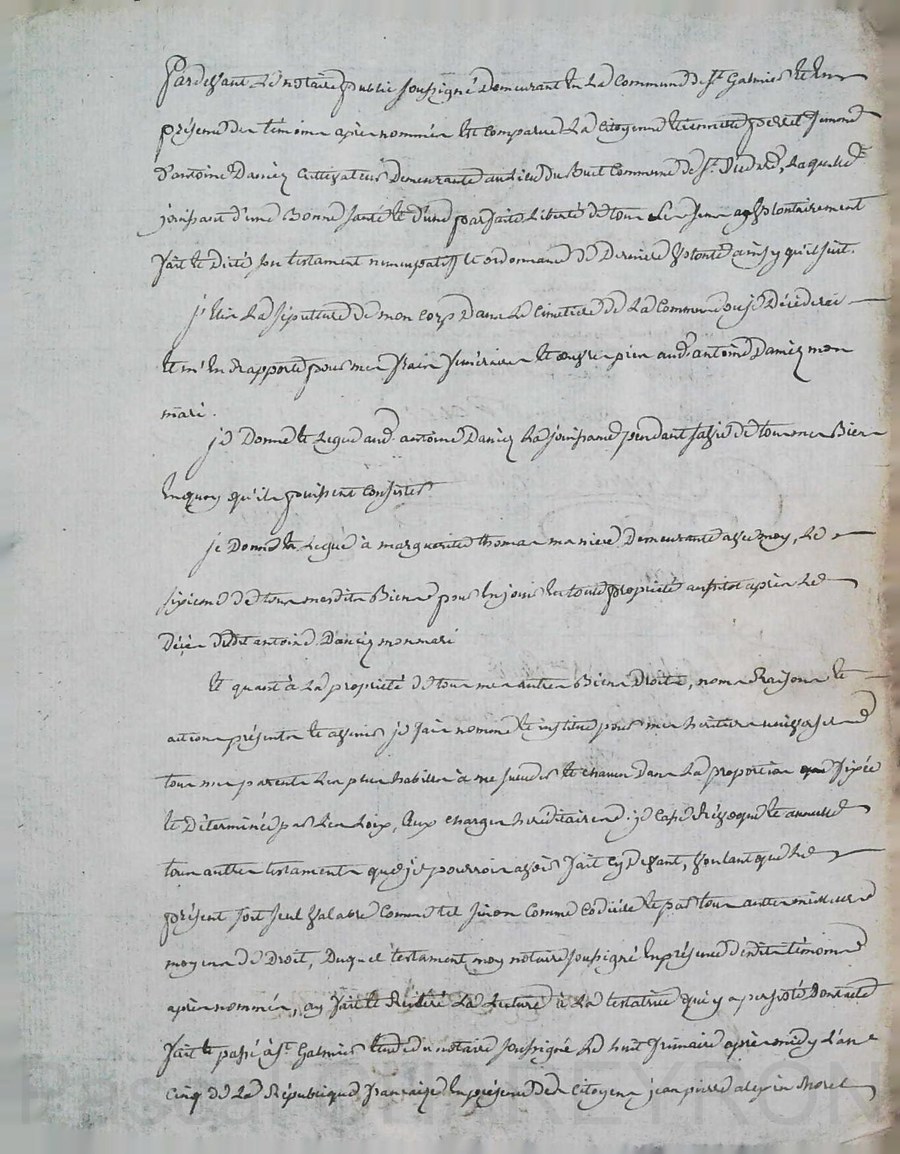 Pardevant Le notaire public soussigné Demeurant En La Commune de St. Galmier Et En
présence des témoins après nommés Est Comparue La Citoyenne perret femme
d'antoine Dancez Cultivateur Demeurante au Lieu du Commune de St. Laquelle
jouissant d'une Bonne santé Et d'une parfaite Liberté de tous Ses sens a volontairement
fait Et dicté son testament nuncupatif Et ordonnance De Derniere volonté ainsy qu'il suit.
j'Elis La sépulture de mon Corps Dans Le Cimetière de La Commune ou je Décéderai
Et m'En Rapporte pour mes frais funéraires Et œuvres pies aud. antoine Dancez mon
mari.
je Donne Et Legue aud. antoine Dancez La jouissance pendant sa vie de tous mes Biens
En quoy qu'ils puissent Consister
je Donne Et Legue à marguerite thomas ma niece Demeurante avec moy, Le
sixieme de tous mesdits Biens pour En jouir En toute propriété aussitot après Le
Décès dudit antoine Dancez mon mari
Et quant à La propriété de tous mes autres Biens Droits, noms Raisons Et
actions présents Et avenir je fais nomme Et institue pour mes héritiers universels
tous mes parents Les plus habilles à me succeder Et chacun Dans La proportion fixée
Et Déterminée par Les Loix, aux charges héréditaires. je Casse Révoque Et annulle
tous autres testaments que je pourrois avoir fait cy Devant, voulant que Le
présent soit seul valable Comme tel sinon Comme Codicile Et par tous autres meilleurs
moyens de Droit, Duquel testament moy notaire soussigné En présence desdits témoins
après nommés, ay fait Et Réitéré La Lecture à La testatrice qui y a persisté Dont acte
fait Et passé à St. Galmier Etude du notaire soussigné Le huit frimaire après midy L'an
Cinq de La République française En présence des Citoyens jean pierre Morel
CHAREYRON